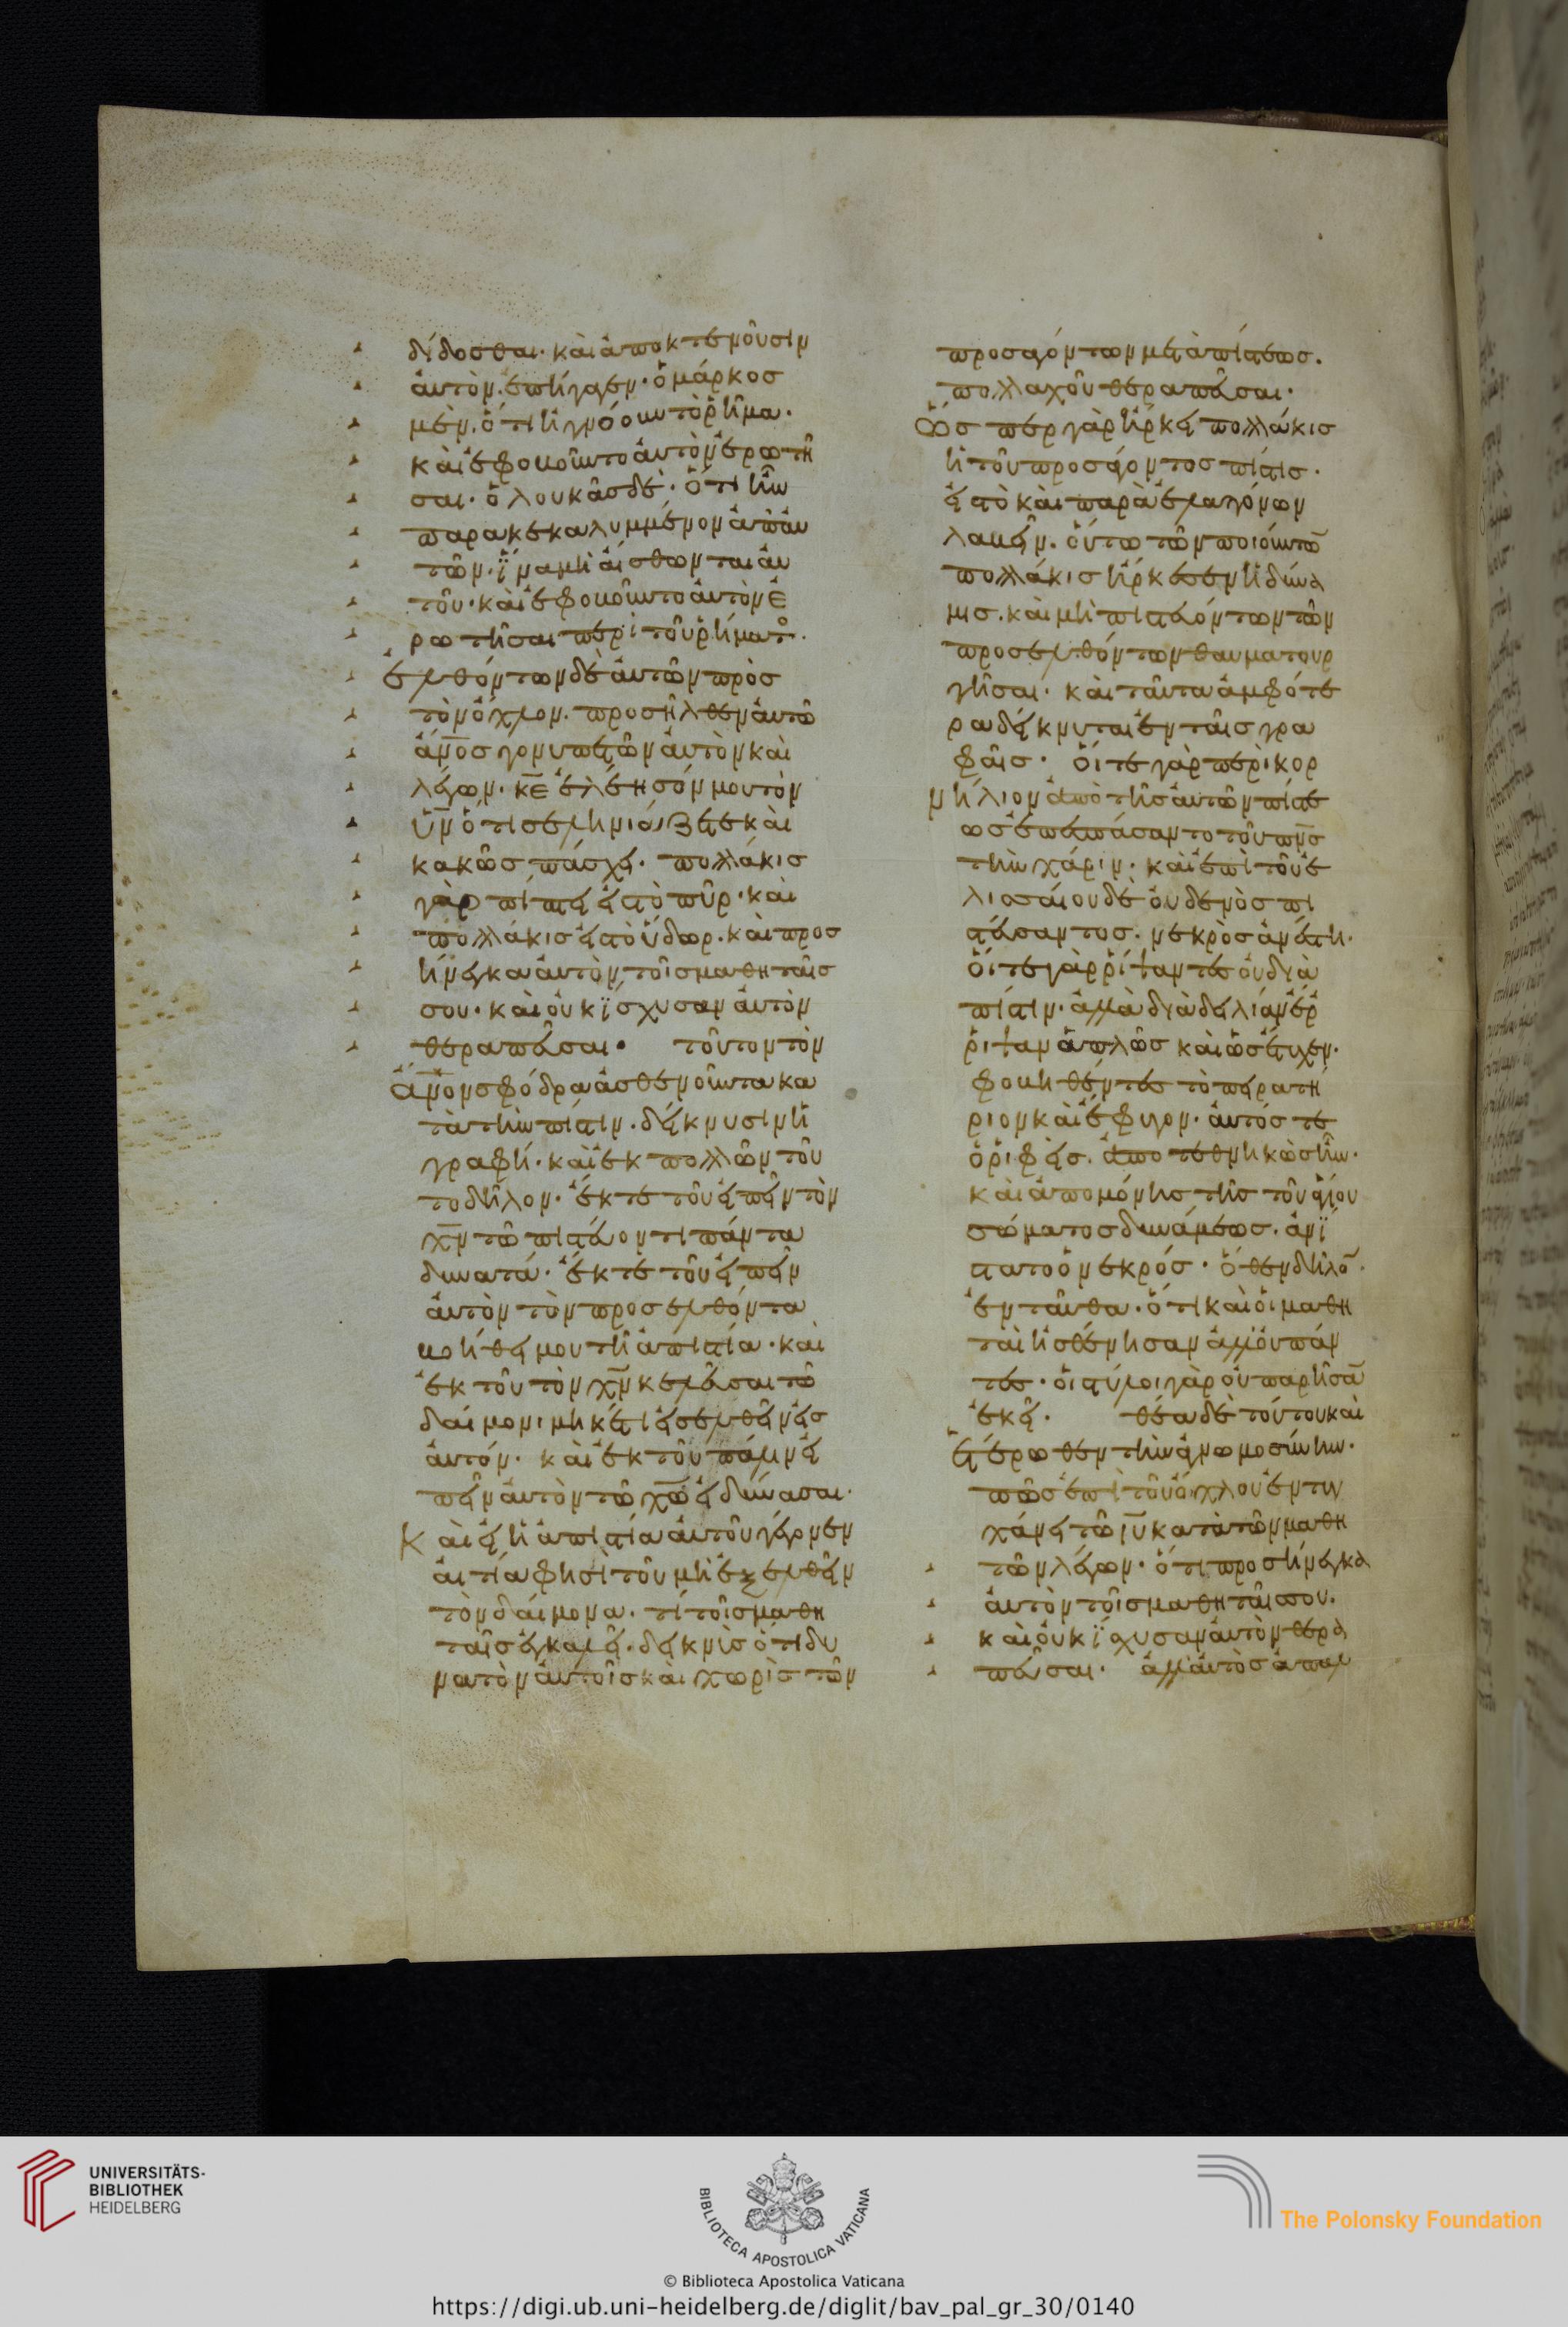 δίδοσθαι· καὶ ἀποκτενοῦσιν
αὐτὸν. ἐπήγαγεν· ὁ μάρκος
μὲν. ὅτι ἠγνόουν τὸ ῥῆμα·
καὶ ἐφοβοῦντο αὐτὸν ἐρωτῆ
σαι· ὁ λουκᾶς δέ· ὅτι ἦν
παρακεκαλυμμένον ἀπ' αὐ
τῶν· ἵνα μὴ αἴσθωνται αὐ
τοῦ· καὶ ἐφοβοῦντο αὐτὸν ἐ
ρωτῆσαι περὶ τοῦ ῥήματο.
ἐλθόντων δὲ αὐτῶν πρὸς
τὸν ὄχλον. προσῆλθεν αὐτῶ
ἄνος γονυπετῶν αὐτὸν καὶ
λέγων· κε ἐλέησόν μου τὸν
υν ὅτι σεληνιάζεται καὶ
κακῶς πάσχει· πολλάκις
γὰρ πίπτει εἰς τὸ πῦρ· καὶ
πολλάκις εἰς τὸ ὕδωρ. καὶ προσ
ήνεγκα αὐτὸν τοῖς μαθηταῖς
σου· καὶ οὐκ ἴσχυσαν αὐτὸν
θεραπεῦσαι· τοῦτον τὸν
ἄνον σφόδρα ἀσθενοῦντα κα
τὰ τὴν πίστιν. δείκνυσιν ἡ
γραφή· καὶ ἐκ πολλῶν τοῦ
το δῆλον. ἔκ τε τοῦ εἰπεῖν τὸν
χν τῶ πιστεύοντι πάντα
δυνατά· ἔκ τε τοῦ εἰπεῖν
αὐτὸν τὸν προσελθόντα
βοήθει μου τῆ ἀπιστία· καὶ
ἐκ τοῦ τὸν χν κελεῦσαι τῶ
δαίμονι μηκέτι εἰσελθεῖν εἰς
αὐτόν· καὶ ἐκ τοῦ πάλιν εἰ
πεῖν αὐτὸν τῶ χω εἰ δύνασαι·
Καὶ εἰ ἡ ἀπιστία αὐτοῦ γέγονεν
αἰτία φησὶ τοῦ μὴ ἐξελθεῖν
τὸν δαίμονα. τί τοῖς μαθη
ταῖς ἐγκαλεῖ. δεικνὺς ὅτι δυ
νατὸν αὐτοῖς καὶ χωρὶς τῶν
προσαγόντων μετὰ πίστεως.
πολλαχοῦ θεραπεῦσαι·
Ὥσπερ γὰρ ἤρκει πολλάκις
ἡ τοῦ προσάγοντος πίστις.
εἰς τὸ καὶ παρὰ ἐλαττόνων
λαβεῖν. οὕτω τῶν ποιούντω
πολλάκις ἤρκεσεν ἡ δύνα
μις. καὶ μὴ πιστευόντων τῶν
προσελθόντων θαυματουρ
γῆσαι. καὶ ταῦτα ἀμφότε
ρα δείκνυται ἐν ταῖς γρα
φαῖς· οἵ τε γὰρ περὶ κορ
νήλιον ἀπὸ τῆς αὐτῶν πίστε
ως ἐπεσπάσαντο τοῦ πνς
τὴν χάριν. καὶ ἐπὶ τοῦ ἐ
λισσαίου δὲ οὐδενὸς πι
στεύσαντος. νεκρὸς ἀνέστη.
οἵ τε γὰρ ῥίψαντες οὐ διὰ
πίστιν. ἀλλὰ διὰ δειλίαν ἔρ
ριψαν ἁπλῶς καὶ ὡς ἔτυχεν.
φοβηθέντες τὸ πειρατή
ριον καὶ ἔφυγον· αὐτός τε
ὁ ῥιφείς. ἀποτεθνηκὼς ἦν.
καὶ ἀπὸ μόνης τῆς τοῦ ἁγίου
σώματος δυνάμεως. ἀνί
στατο ὁ νεκρός· ὅθεν δῆλο.
ἐνταῦθα. ὅτι καὶ οἱ μαθη
ταὶ ἠσθένησαν ἀλλ' οὐ πάν
τες· οἱ στύλοι γὰρ οὐ παρῆσα
ἐκεῖ. θέα δὲ τούτου καὶ
ἑτέρωθεν τὴν ἀγνωμοσύνην.
πῶς ἐπὶ τοῦ ὄχλου ἐντυγ
χάνει τῶ ιυ κατὰ τῶν μαθη
τῶν λέγων· ὅτι προσήνεγκα
αὐτὸν τοῖς μαθηταῖς σου.
καὶ οὐκ ἴσχυσαν αὐτὸν θερα
πεῦσαι. ἀλλ' αὐτὸς ἀπαλ
UNIVERSITÄTS-
BIBLIOTHEK
HEIDELBERG
BIBLIOTECA APOSTOLICA VATICANA
The Polonsky Foundation
© Biblioteca Apostolica Vaticana
https://digi.ub.uni-heidelberg.de/diglit/bav_pal_gr_30/0140